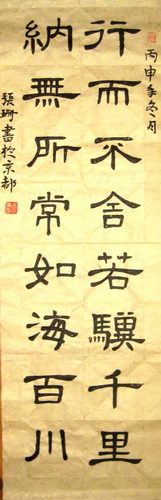 丙申年冬月
行而不舍若驥千里
納無所常如海百川
張珂書於京都